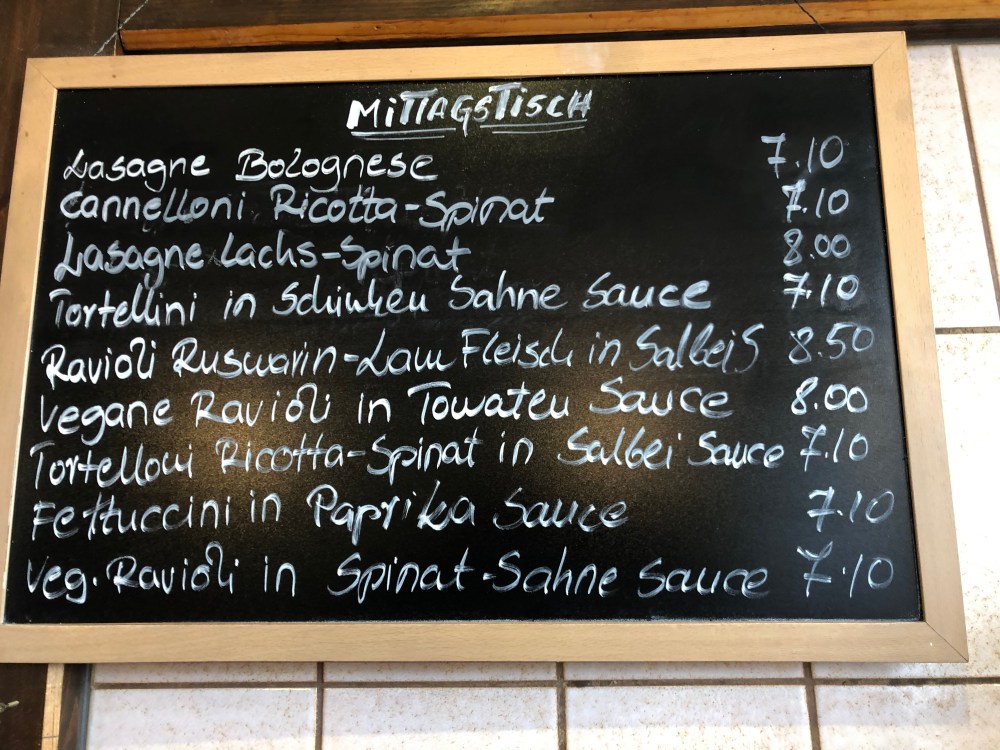 MITTAGSTISCH
Lasagne Bolognese 7.10
Cannelloni Ricotta-Spinat 7.10
Lasagne Lachs-Spinat 8.00
Tortellini in Schinken Sahne Sauce 7.10
Ravioli Rusmarin-Lam Fleisch in Salbei S 8.50
Vegane Ravioli in Tomaten Sauce 8.00
Tortelloni Ricotta-Spinat in Salbei Sauce 7.10
Fettuccini in Paprika Sauce 7.10
Veg. Ravioli in Spinat-Sahne Sauce 7.10